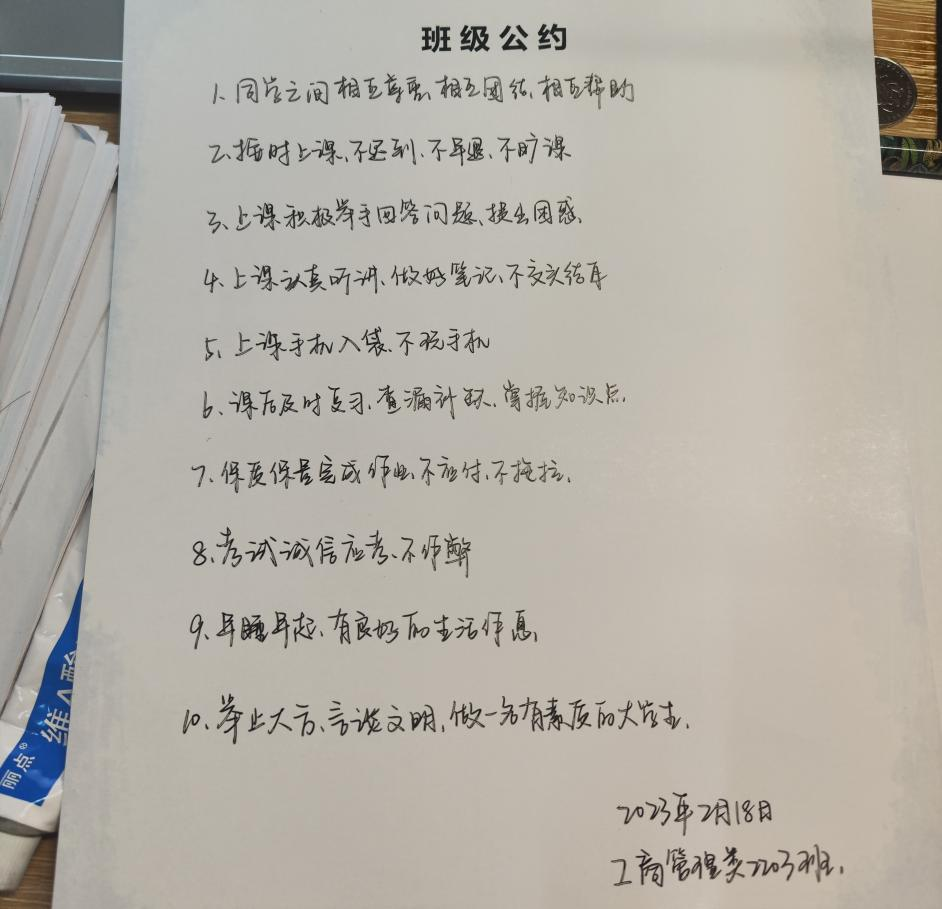 班级公约
1、同学之间相互尊重、相互团结、相互帮助
2、按时上课、不迟到、不早退、不旷课
3、上课积极举手回答问题、提出困惑.
4、上课认真听讲、做好笔记、不交头结耳
5、上课手机入袋、不玩手机
6、课后及时复习、查漏补缺、掌握知识点.
7、保质保量完成作业、不应付、不拖拉.
8、考试诚信应考、不作弊
9、早睡早起、有良好的生活作息.
10、举止大方、言谈文明,做一名有素质的大学生.
2023年2月18日
工商管理类2203班.
丽点®
维A酸